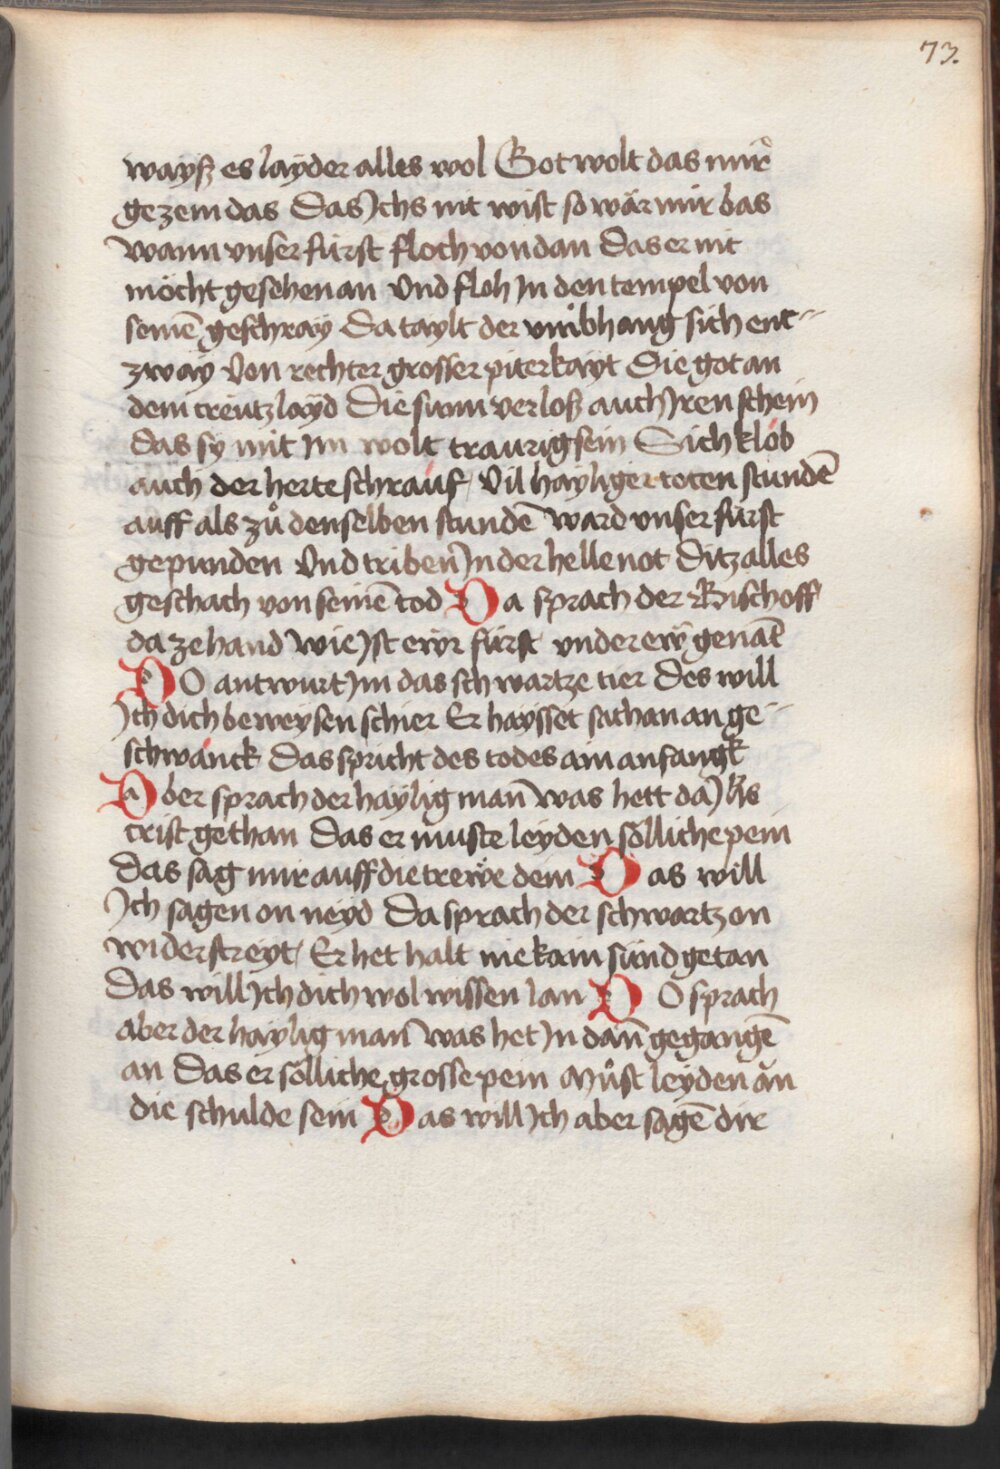 73.
wayß es layder alles wol Got wolt das mir
gezem das Das Ichs nit wist so wär mir bas
Wann vnser fürst floch von dan Das er nit
möcht gesehen an Vnd floh In den tempel von
seinē geschray Da taylt der vmbhang sich ent-
zway Von rechter grosser piterkayt Die got an
dem creutz layd Die sunn verloß auch Iren schein
das sy mit Im wolt traurig sein Sich klob
auch der herte schrauf / Vil hayliger toten stundē
auff als zů den selben stundē Ward vnser fürst
gepunden Vnd triben In der helle not Ditz alles
geschach von seinē tod Da sprach der Bischoff
da zehand Wie Ist ewr fürst vnder ew genāt
DO antwurt Im das schwartze tier Des will
Ich dich beweysen schier Er haysset sathan an ge-
schwanck Das spricht des todes ain anfangk
Aber sprach der haylig man Was hett da Ihs
crist gethan Das er muste leyden sölliche pein
Das sag mir auff die trewe dein Das will
Ich sagen on neyd Da sprach der schwartz on
widerstreyt / Er het halt nie kain sünd getan
Das will Ich dich wol wissen lan DO sprach
aber der haylig man Was het In dan̄ gegangē
an Das er sölliche grosse pein Můst leyden an
die schulde sein Das will Ich aber sagē dir